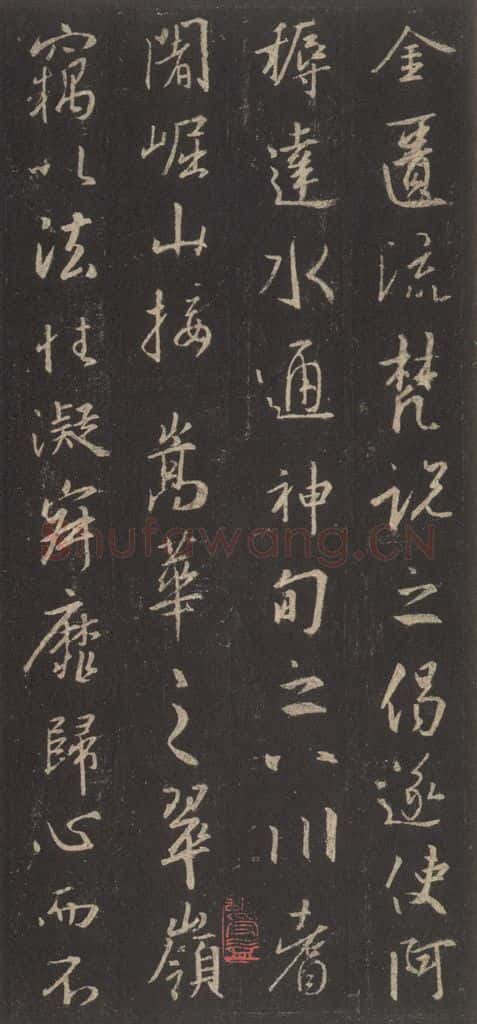 金匱流梵說之偈遂使阿
耨達水通神甸之八川耆
闍崛山接嵩華之翠嶺
竊以法性凝寂靡歸心而不
Shufawang.CN